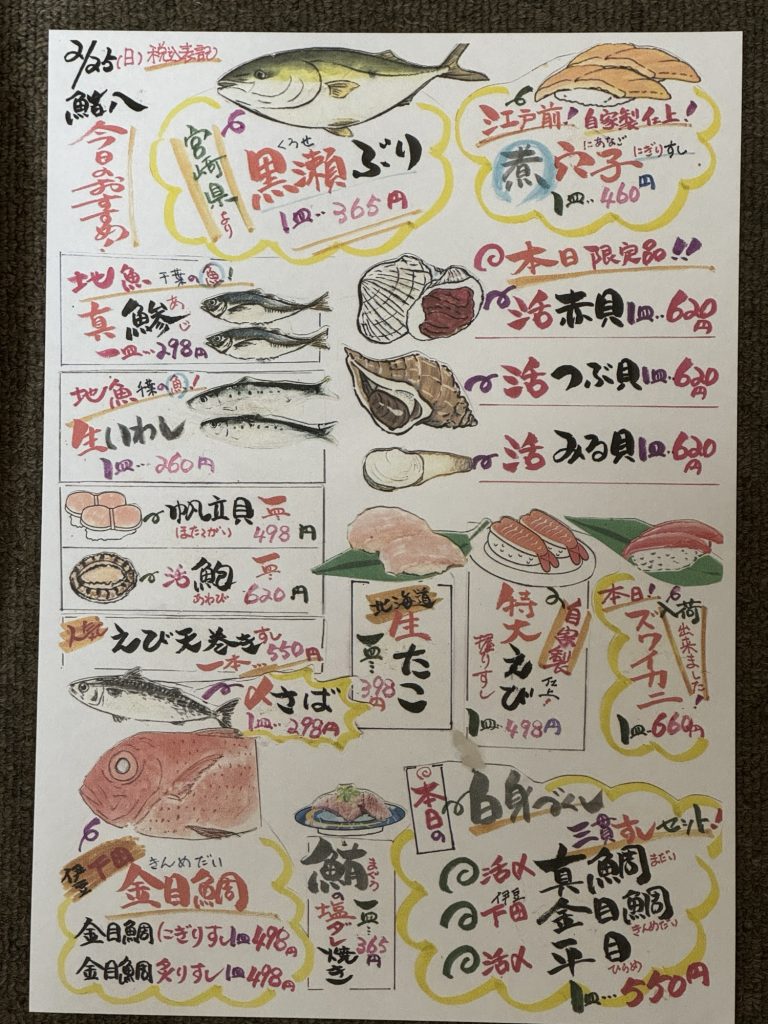 2/25(日) 税込表記
鮨八
今日のおすすめ!
宮崎県より
くろせ
黒瀬ぶり
1皿…365円
江戸前!自家製仕上!
にあなご
煮穴子にぎりすし
1皿…460円
地魚 千葉の魚!
あじ
真鯵
一皿…298円
地魚 千葉の魚!
生いわし
1皿…260円
本日限定品!!
活赤貝1皿…620円
活つぶ貝1皿…620円
活みる貝1皿…620円
帆立貝 一皿
ほたてがい 498円
活鮑 一皿
あわび 620円
人気 えび天巻きすし
一本…550円
〆さば
1皿…298円
北海道
生たこ
一皿…398円
特大えび
握りすし
自家製仕上!
1皿…498円
本日!入荷出来ました!
ズワイカニ
1皿…660円
伊豆下田
きんめだい
金目鯛
金目鯛にぎりすし1皿498円
金目鯛炙りすし1皿498円
まぐろ
鮪の塩ダレ焼き
一皿…365円
本日の
白身づくし
三貫すしセット!
活〆 真鯛 まだい
伊豆
下田 金目鯛
きんめだい
活〆 平目
ひらめ
1皿…550円